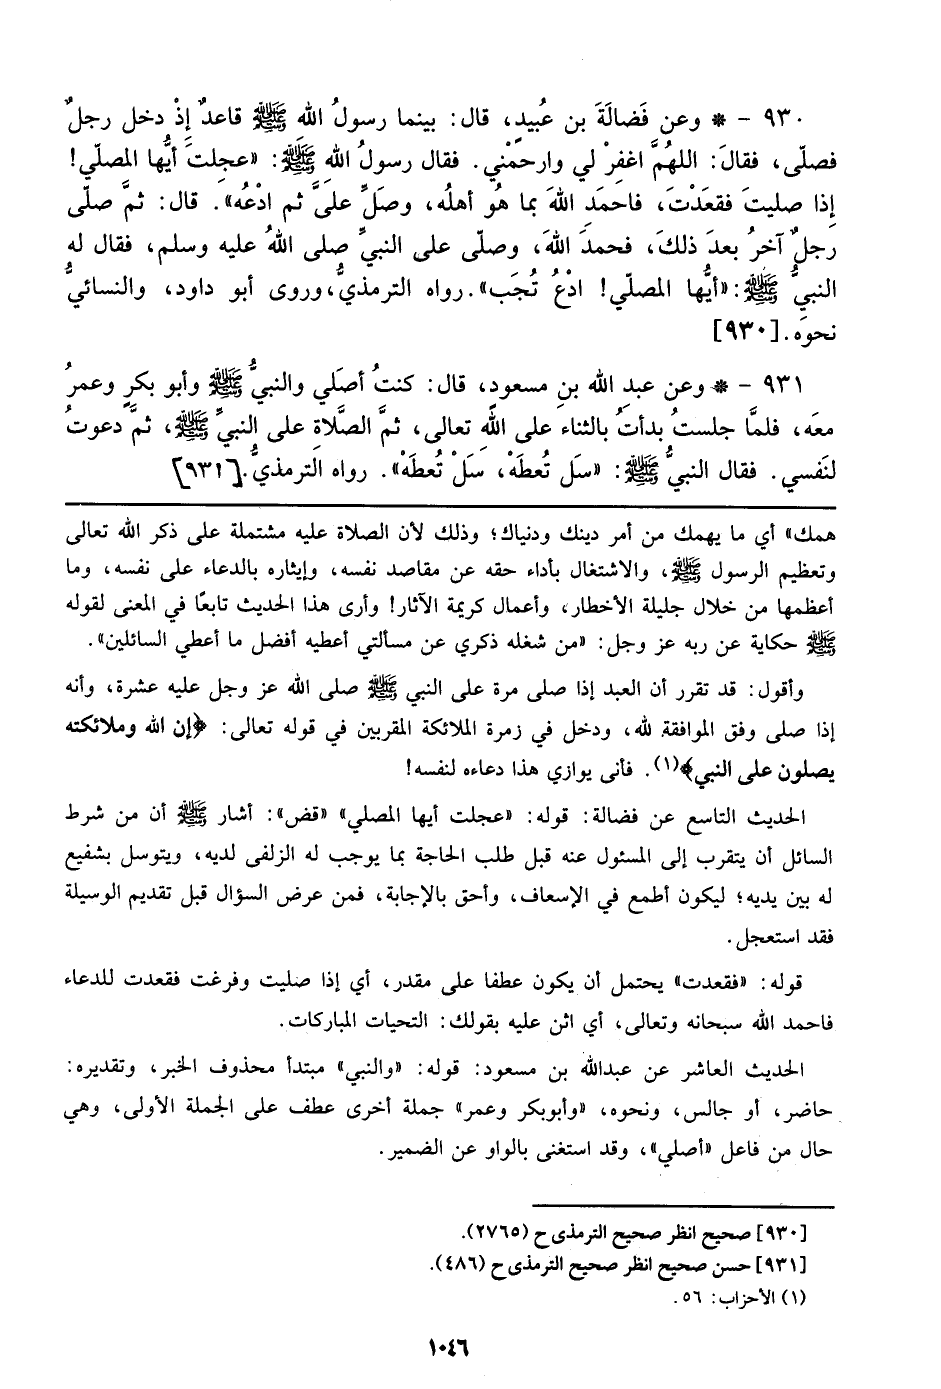 ٩٣٠ – * وعن فَضالَةَ بن عُبيدٍ، قال: بينما رسولُ الله ﷺ قاعدٌ إِذْ دخل رجلٌ
فصلّى، فقالَ: اللهُمَّ اغفِرْ لي وارحمْني. فقال رسولُ اللهِ ﷺ: «عجِلتَ أيُّها المصلّي!
إِذا صليتَ فقعَدْتَ، فاحمَدِ اللهَ بما هُو أهلُه، وصَلِّ عليَّ ثم ادْعُه». قال: ثمَّ صلّى
رجلٌ آخرُ بعدَ ذلكَ، فحمدَ اللهَ، وصلّى على النبيِّ صلى اللهُ عليه وسلم، فقال له
النبيُّ ﷺ: «أيُّها المصلّي! ادْعُ تُجَب». رواه الترمذيُّ، وروى أبو داود، والنسائيُّ
نحوَه. [٩٣٠]
٩٣١ – * وعن عبدِ الله بنِ مسعودٍ، قال: كنتُ أصَلي والنبيُّ ﷺ وأبو بكرٍ وعمرُ
معَه، فلمَّا جلستُ بدأتُ بالثناء على اللهِ تعالى، ثمَّ الصَّلاةِ على النبيِّ ﷺ، ثمَّ دعوتُ
لنَفسي. فقال النبيُّ ﷺ: «سَل تُعطَهْ، سَلْ تُعطَهْ». رواه الترمذيُّ. [٩٣١]
همك» أي ما يهمك من أمر دينك ودنياك؛ وذلك لأن الصلاة عليه مشتملة على ذكر الله تعالى
وتعظيم الرسول ﷺ، والاشتغال بأداء حقه عن مقاصد نفسه، وإيثاره بالدعاء على نفسه، وما
أعظمها من خلال جليلة الأخطار، وأعمال كريمة الآثار! وأرى هذا الحديث تابعًا في المعنى لقوله
ﷺ حكاية عن ربه عز وجل: «من شغله ذكري عن مسألتي أعطيه أفضل ما أعطي السائلين».
وأقول: قد تقرر أن العبد إذا صلى مرة على النبي ﷺ صلى الله عز وجل عليه عشرة، وأنه
إذا صلى وفق الموافقة لله، ودخل في زمرة الملائكة المقربين في قوله تعالى: ﴿إن الله وملائكته
يصلون على النبي﴾(١). فأنى يوازي هذا دعاءه لنفسه!
الحديث التاسع عن فضالة: قوله: «عجلت أيها المصلي» «قض»: أشار ﷺ أن من شرط
السائل أن يتقرب إلى المسئول عنه قبل طلب الحاجة بما يوجب له الزلفى لديه، ويتوسل بشفيع
له بين يديه؛ ليكون أطمع في الإسعاف، وأحق بالإجابة، فمن عرض السؤال قبل تقديم الوسيلة
فقد استعجل.
قوله: «فقعدت» يحتمل أن يكون عطفا على مقدر، أي إذا صليت وفرغت فقعدت للدعاء
فاحمد الله سبحانه وتعالى، أي اثن عليه بقولك: التحيات المباركات.
الحديث العاشر عن عبدالله بن مسعود: قوله: «والنبي» مبتدأ محذوف الخبر، وتقديره:
حاضر، أو جالس، ونحوه، «وأبوبكر وعمر» جملة أخرى عطف على الجملة الأولى، وهي
حال من فاعل «أصلي»، وقد استغنى بالواو عن الضمير.
[٩٣٠] صحيح انظر صحيح الترمذى ح (٢٧٦٥).
[٩٣١] حسن صحيح انظر صحيح الترمذى ح (٤٨٦).
(١) الأحزاب: ٥٦.
١٠٤٦